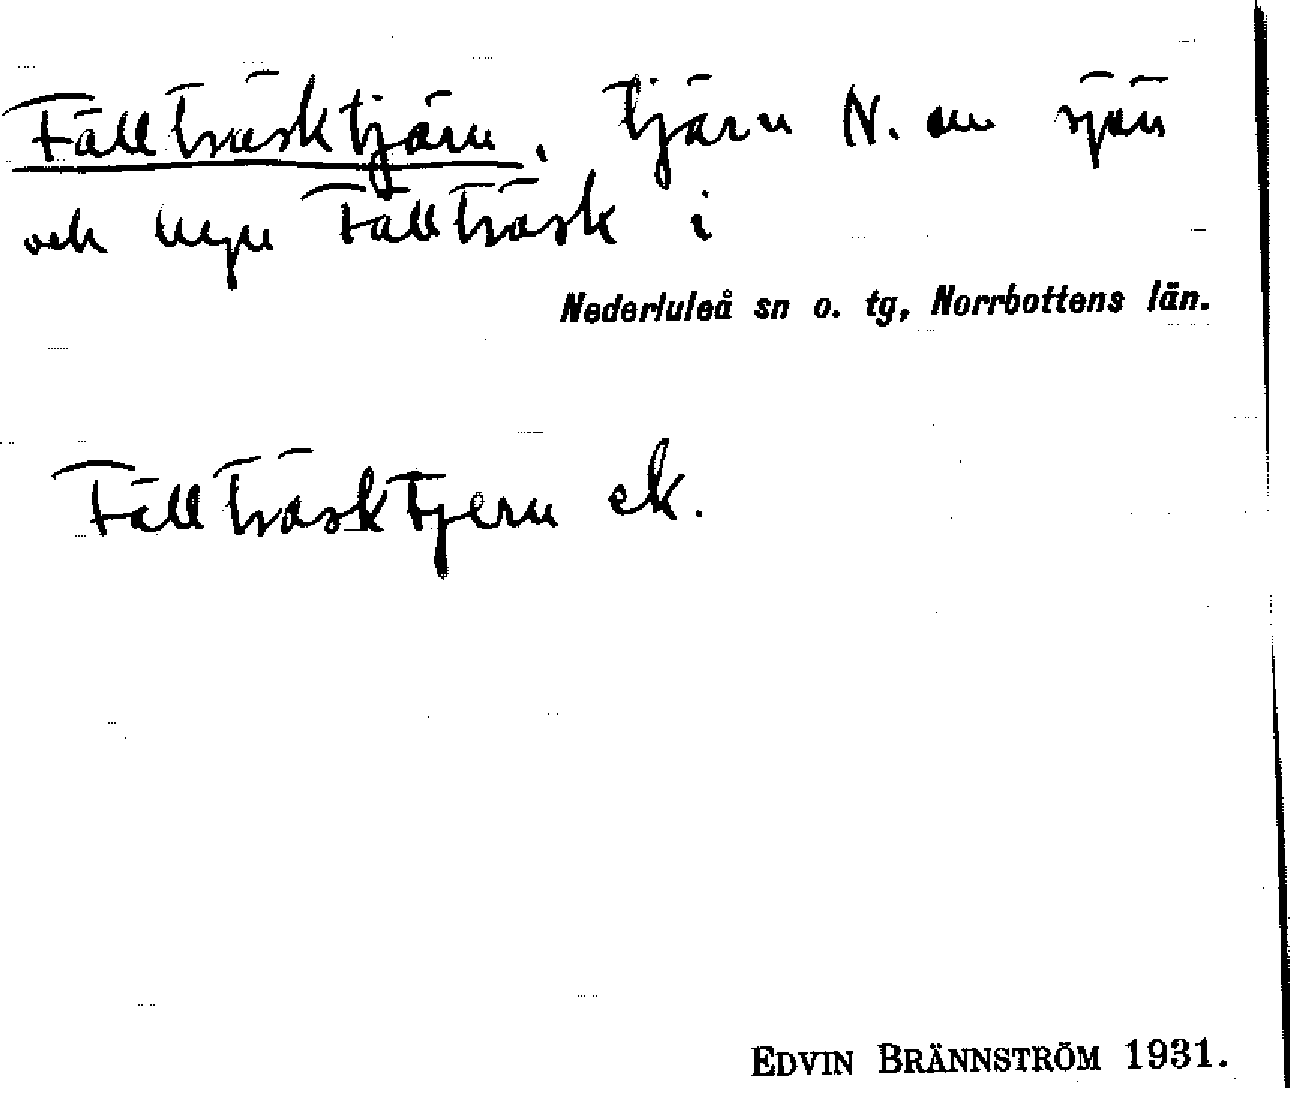 Fällträsktjärn, tjärn N. om sjön
och byn Fällträsk i
Nederluleå sn o. tg, Norrbottens län.
Fällträsktjern ek.
EDVIN BRÄNNSTRÖM 1931.